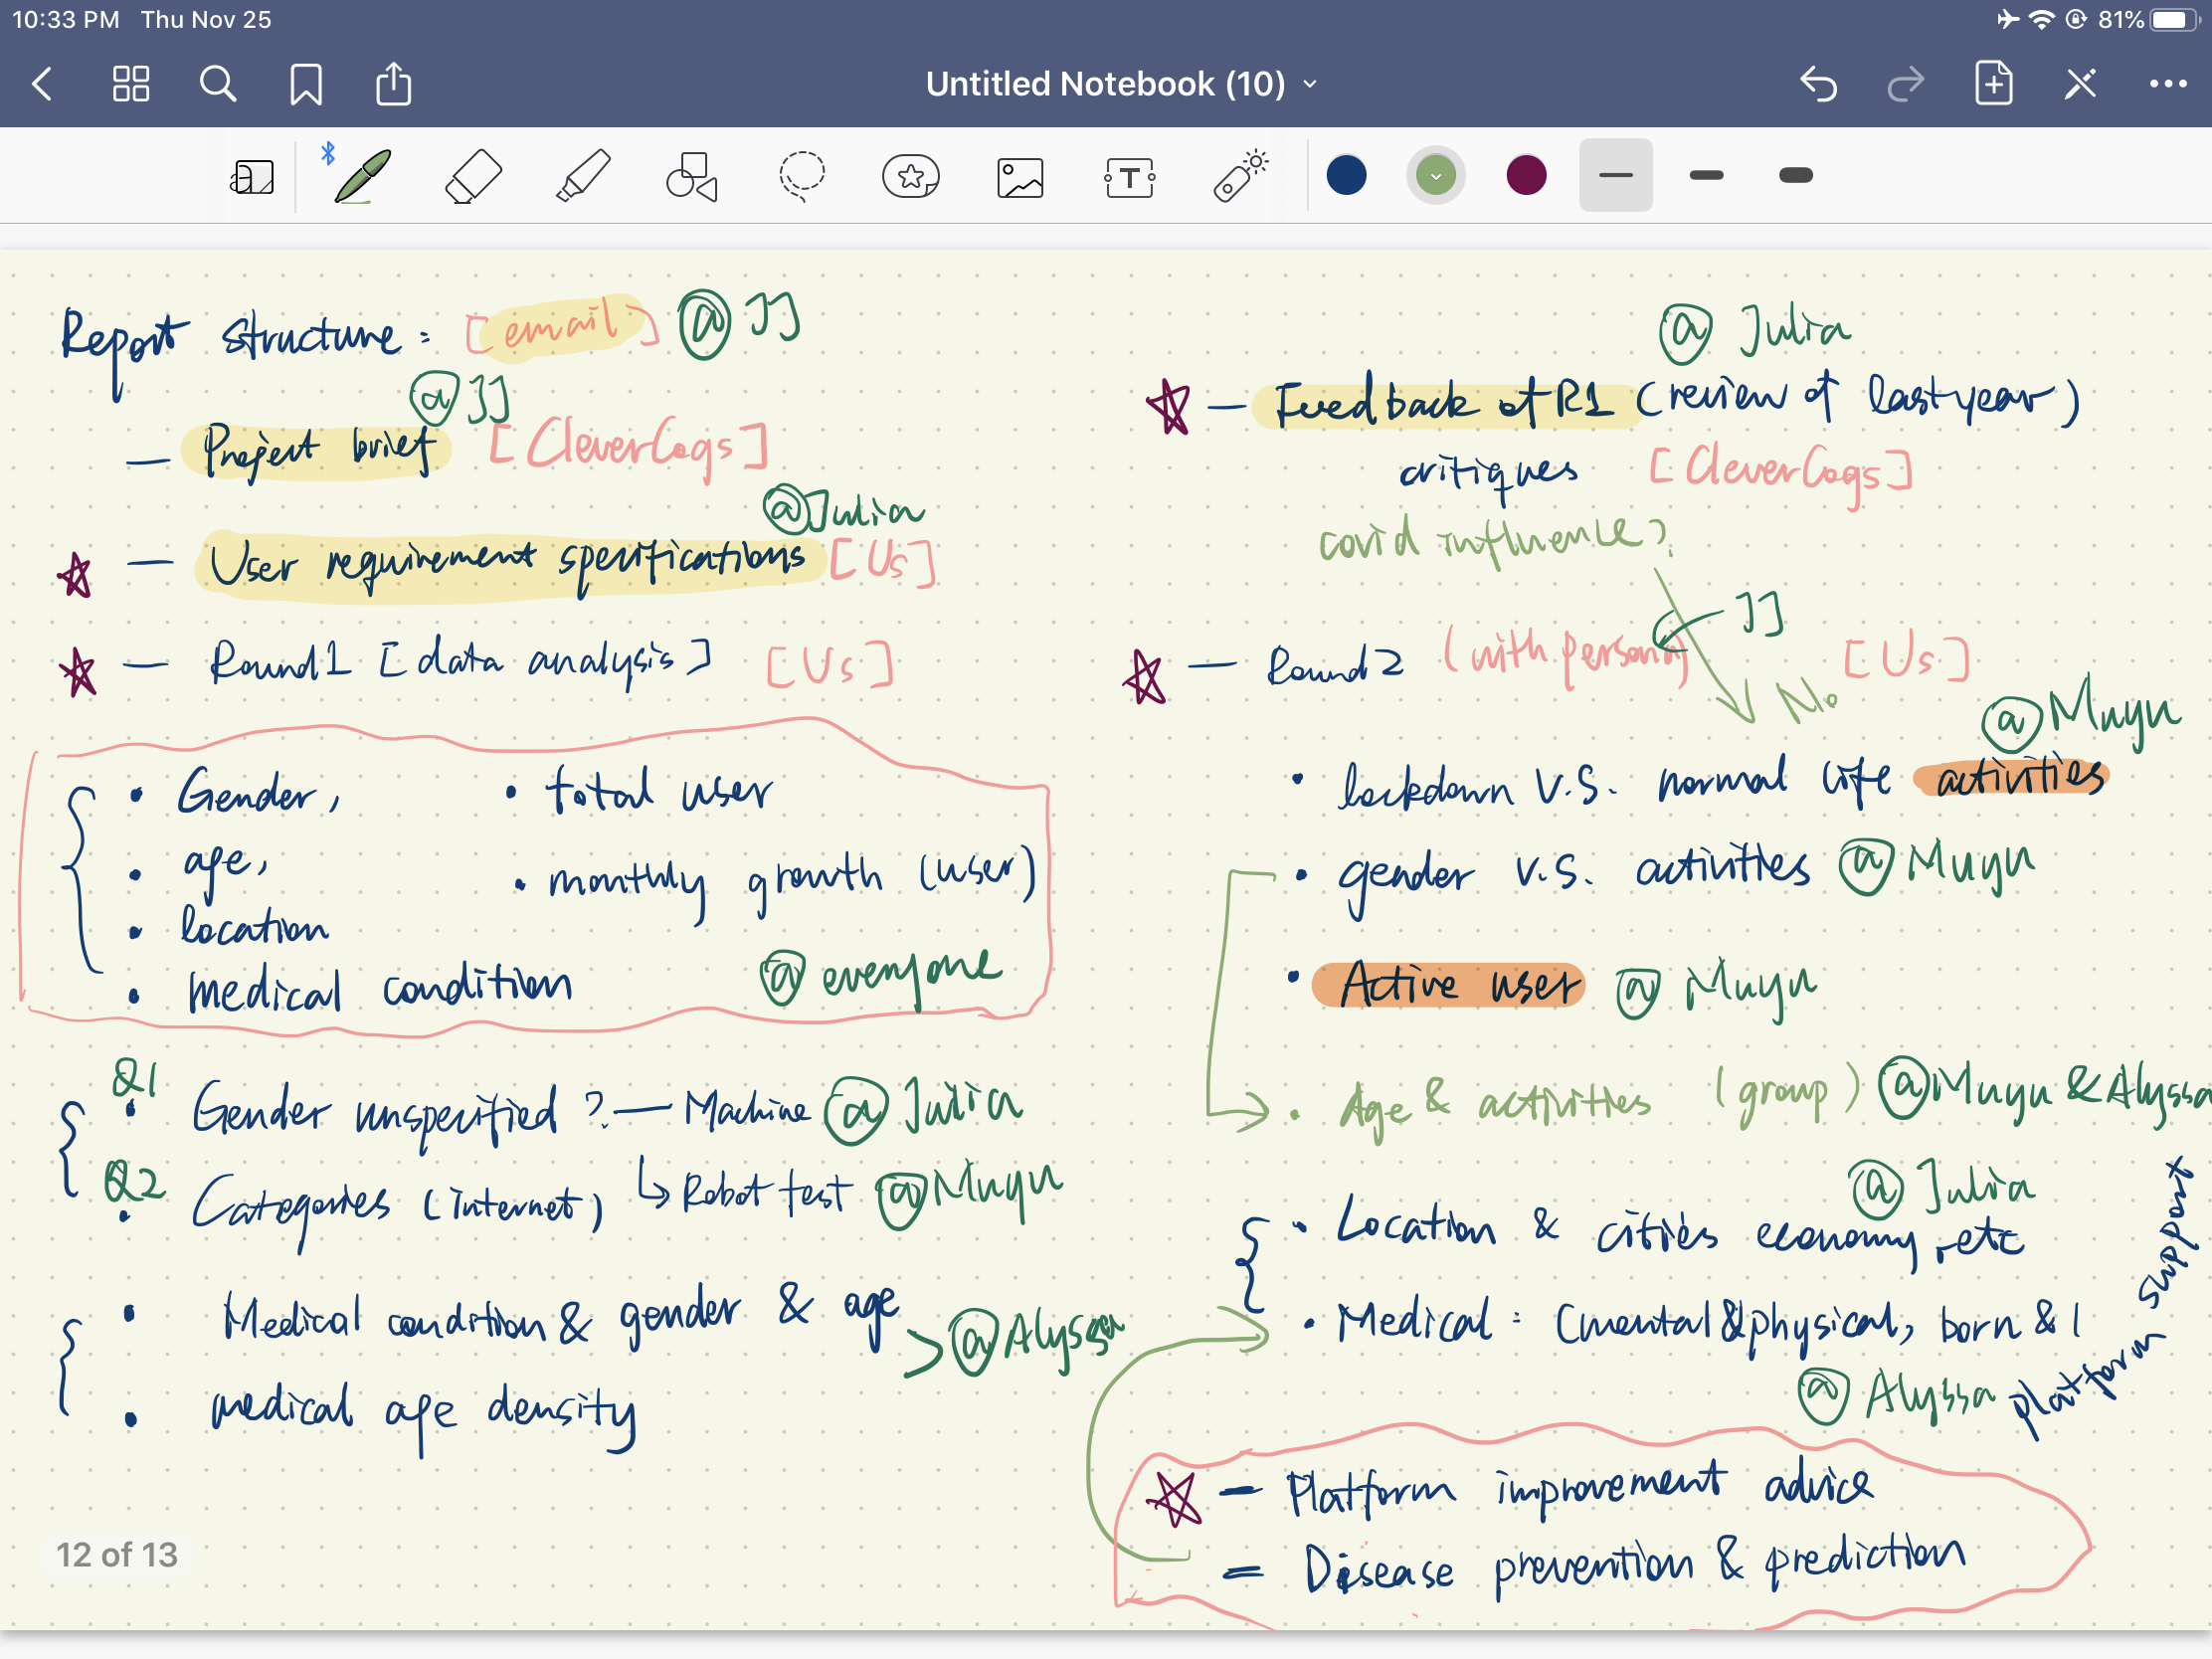 10:33 PM Thu Nov 25
81%
Untitled Notebook (10)
Report structure : [email] @JJ
@JJ
— Project brief [CleverCogs]
@Julia
— User requirement specifications [Us]
— Round 1 [data analysis] [Us]
• Gender,
• total user
• age,
• monthly growth (user)
• location
• medical condition
@everyone
Q1
• Gender unspecified ? — Machine @Julia
Q2
• Categories (internet) ↳ Robot test @Muyu
• Medical condition & gender & age
> @Alyssa
• medical age density
12 of 13
@Julia
— Feedback of R1 (review of last year)
critiques [CleverCogs]
covid influence?
JJ
— Round 2 (with persona) [Us]
No
@Muyu
• lockdown v.s. normal life activities
• gender v.s. activities @Muyu
• Active user @Muyu
• Age & activities (group) @Muyu & Alyssa
@Julia
• Location & cities economy, etc
• Medical : (mental & physical, born & l
@Alyssa
platform support
— Platform improvement advice
= Disease prevention & prediction